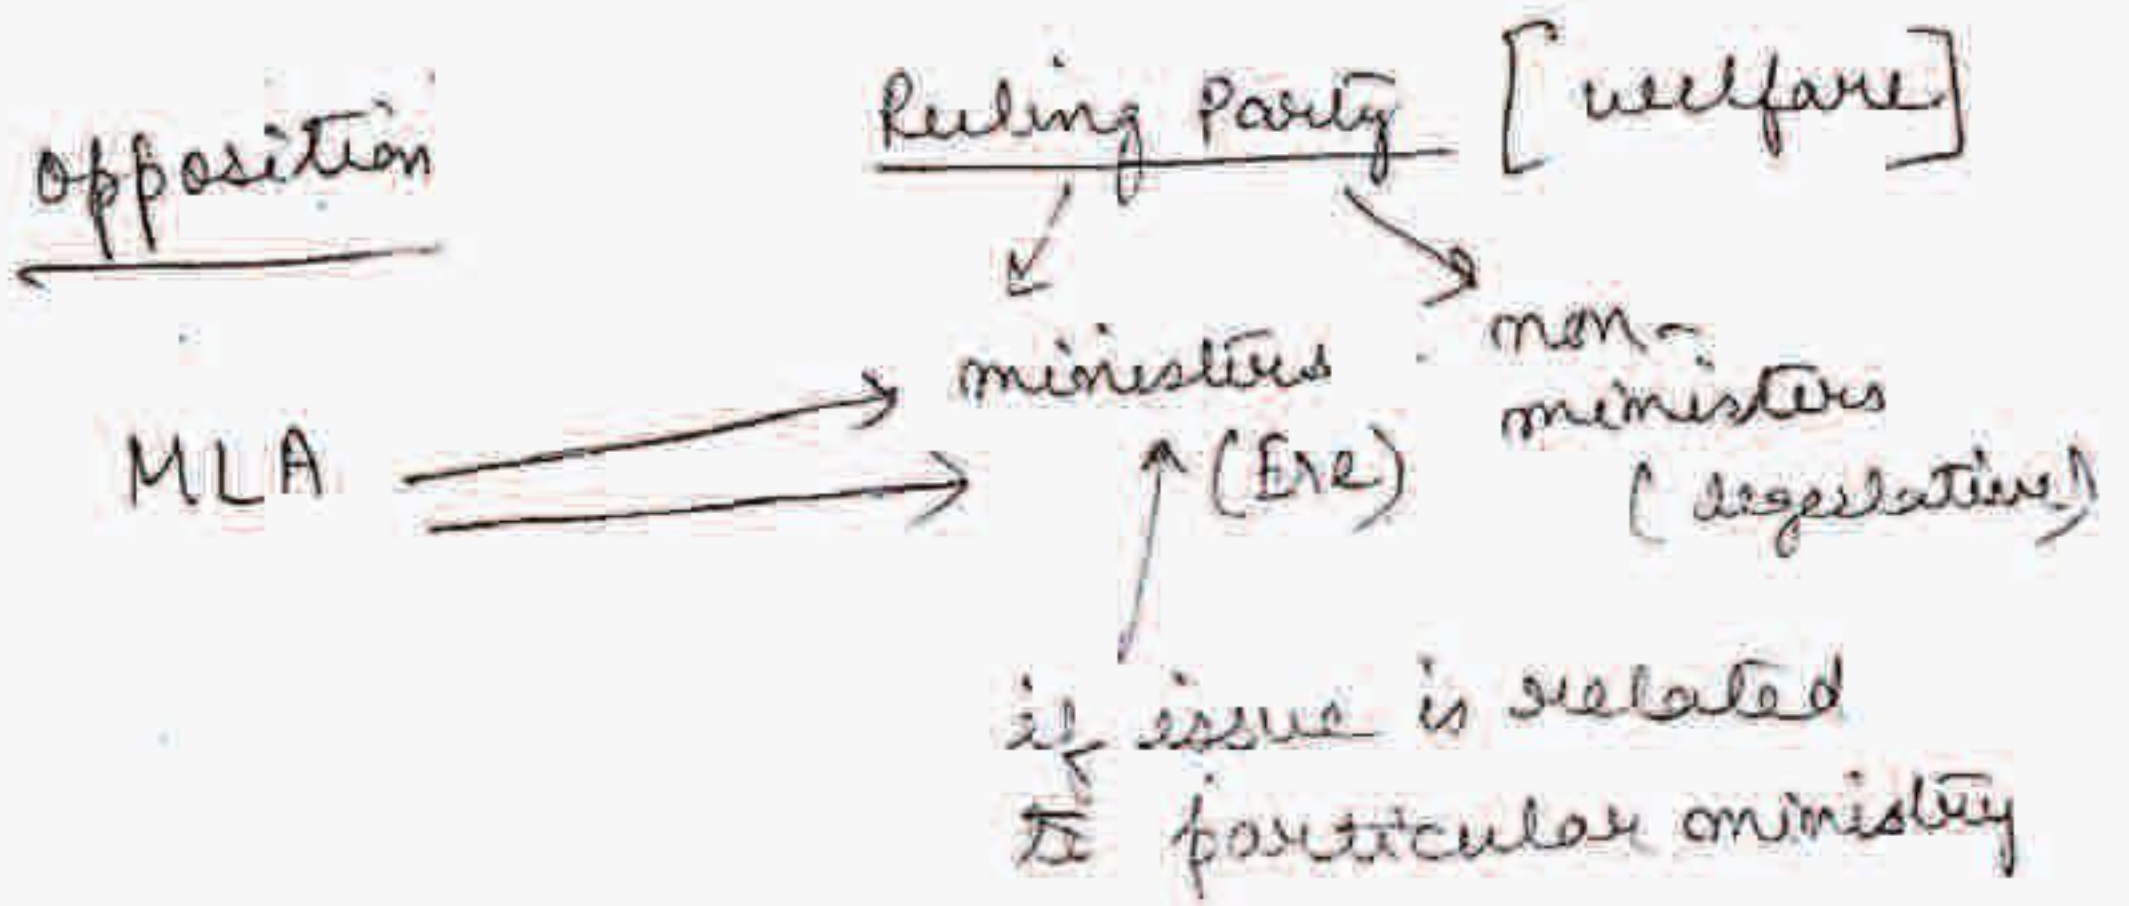 Opposition
Ruling Party [welfare]
ministers
non-
ministers
MLA
(Exe)
(legislative)
if issue is related
to particular ministry